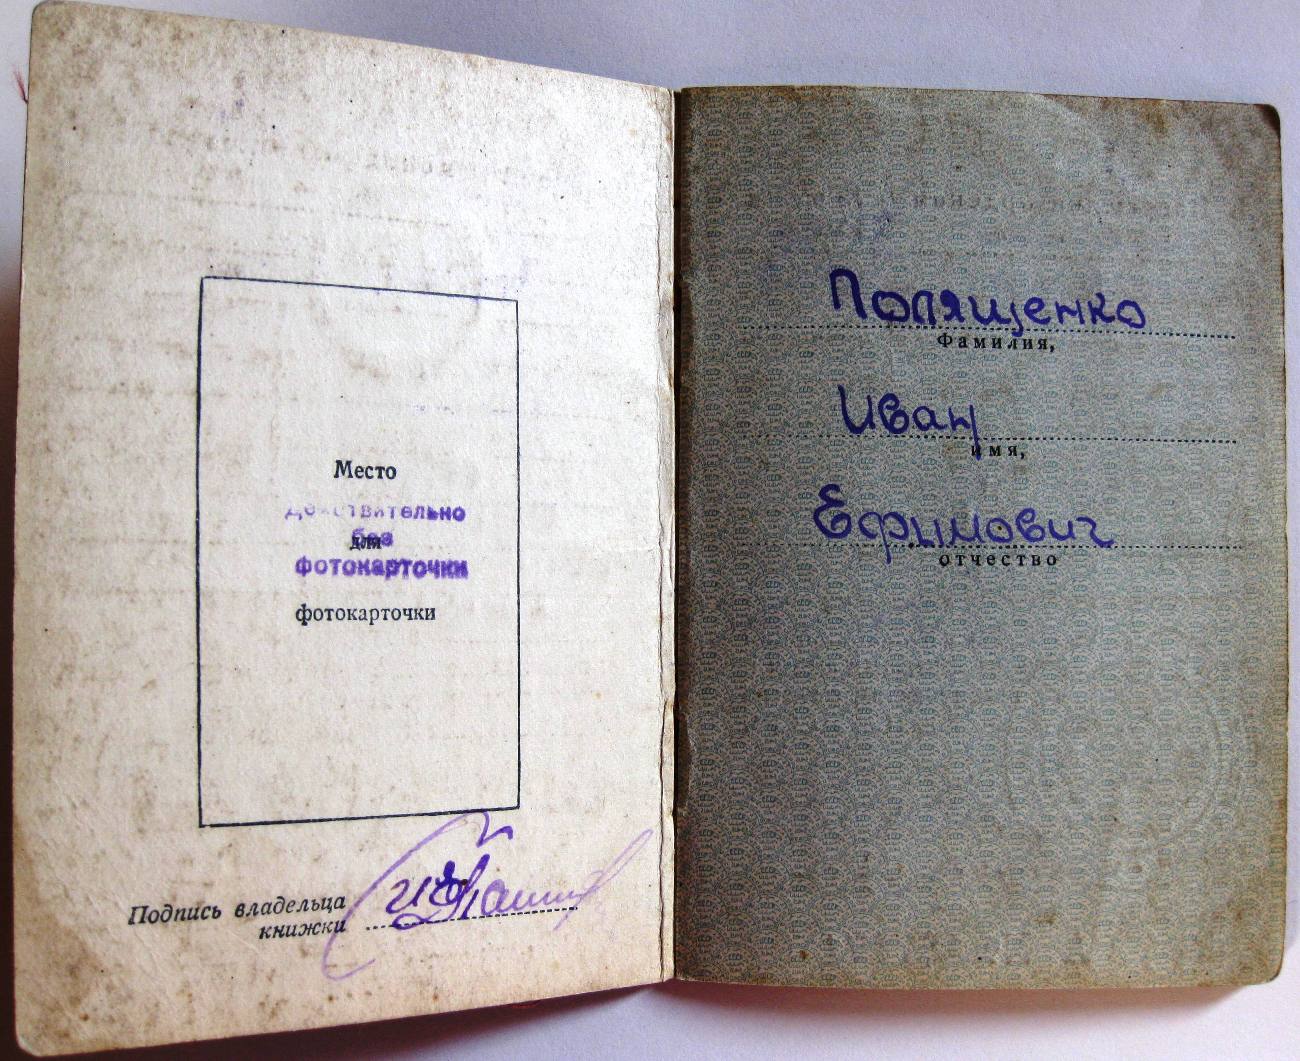 Место
действительно
для
без
фотокарточки
фотокарточки
Подпись владельца
книжки
Полященко
Фамилия,
Иван
имя,
Ефимович
отчество